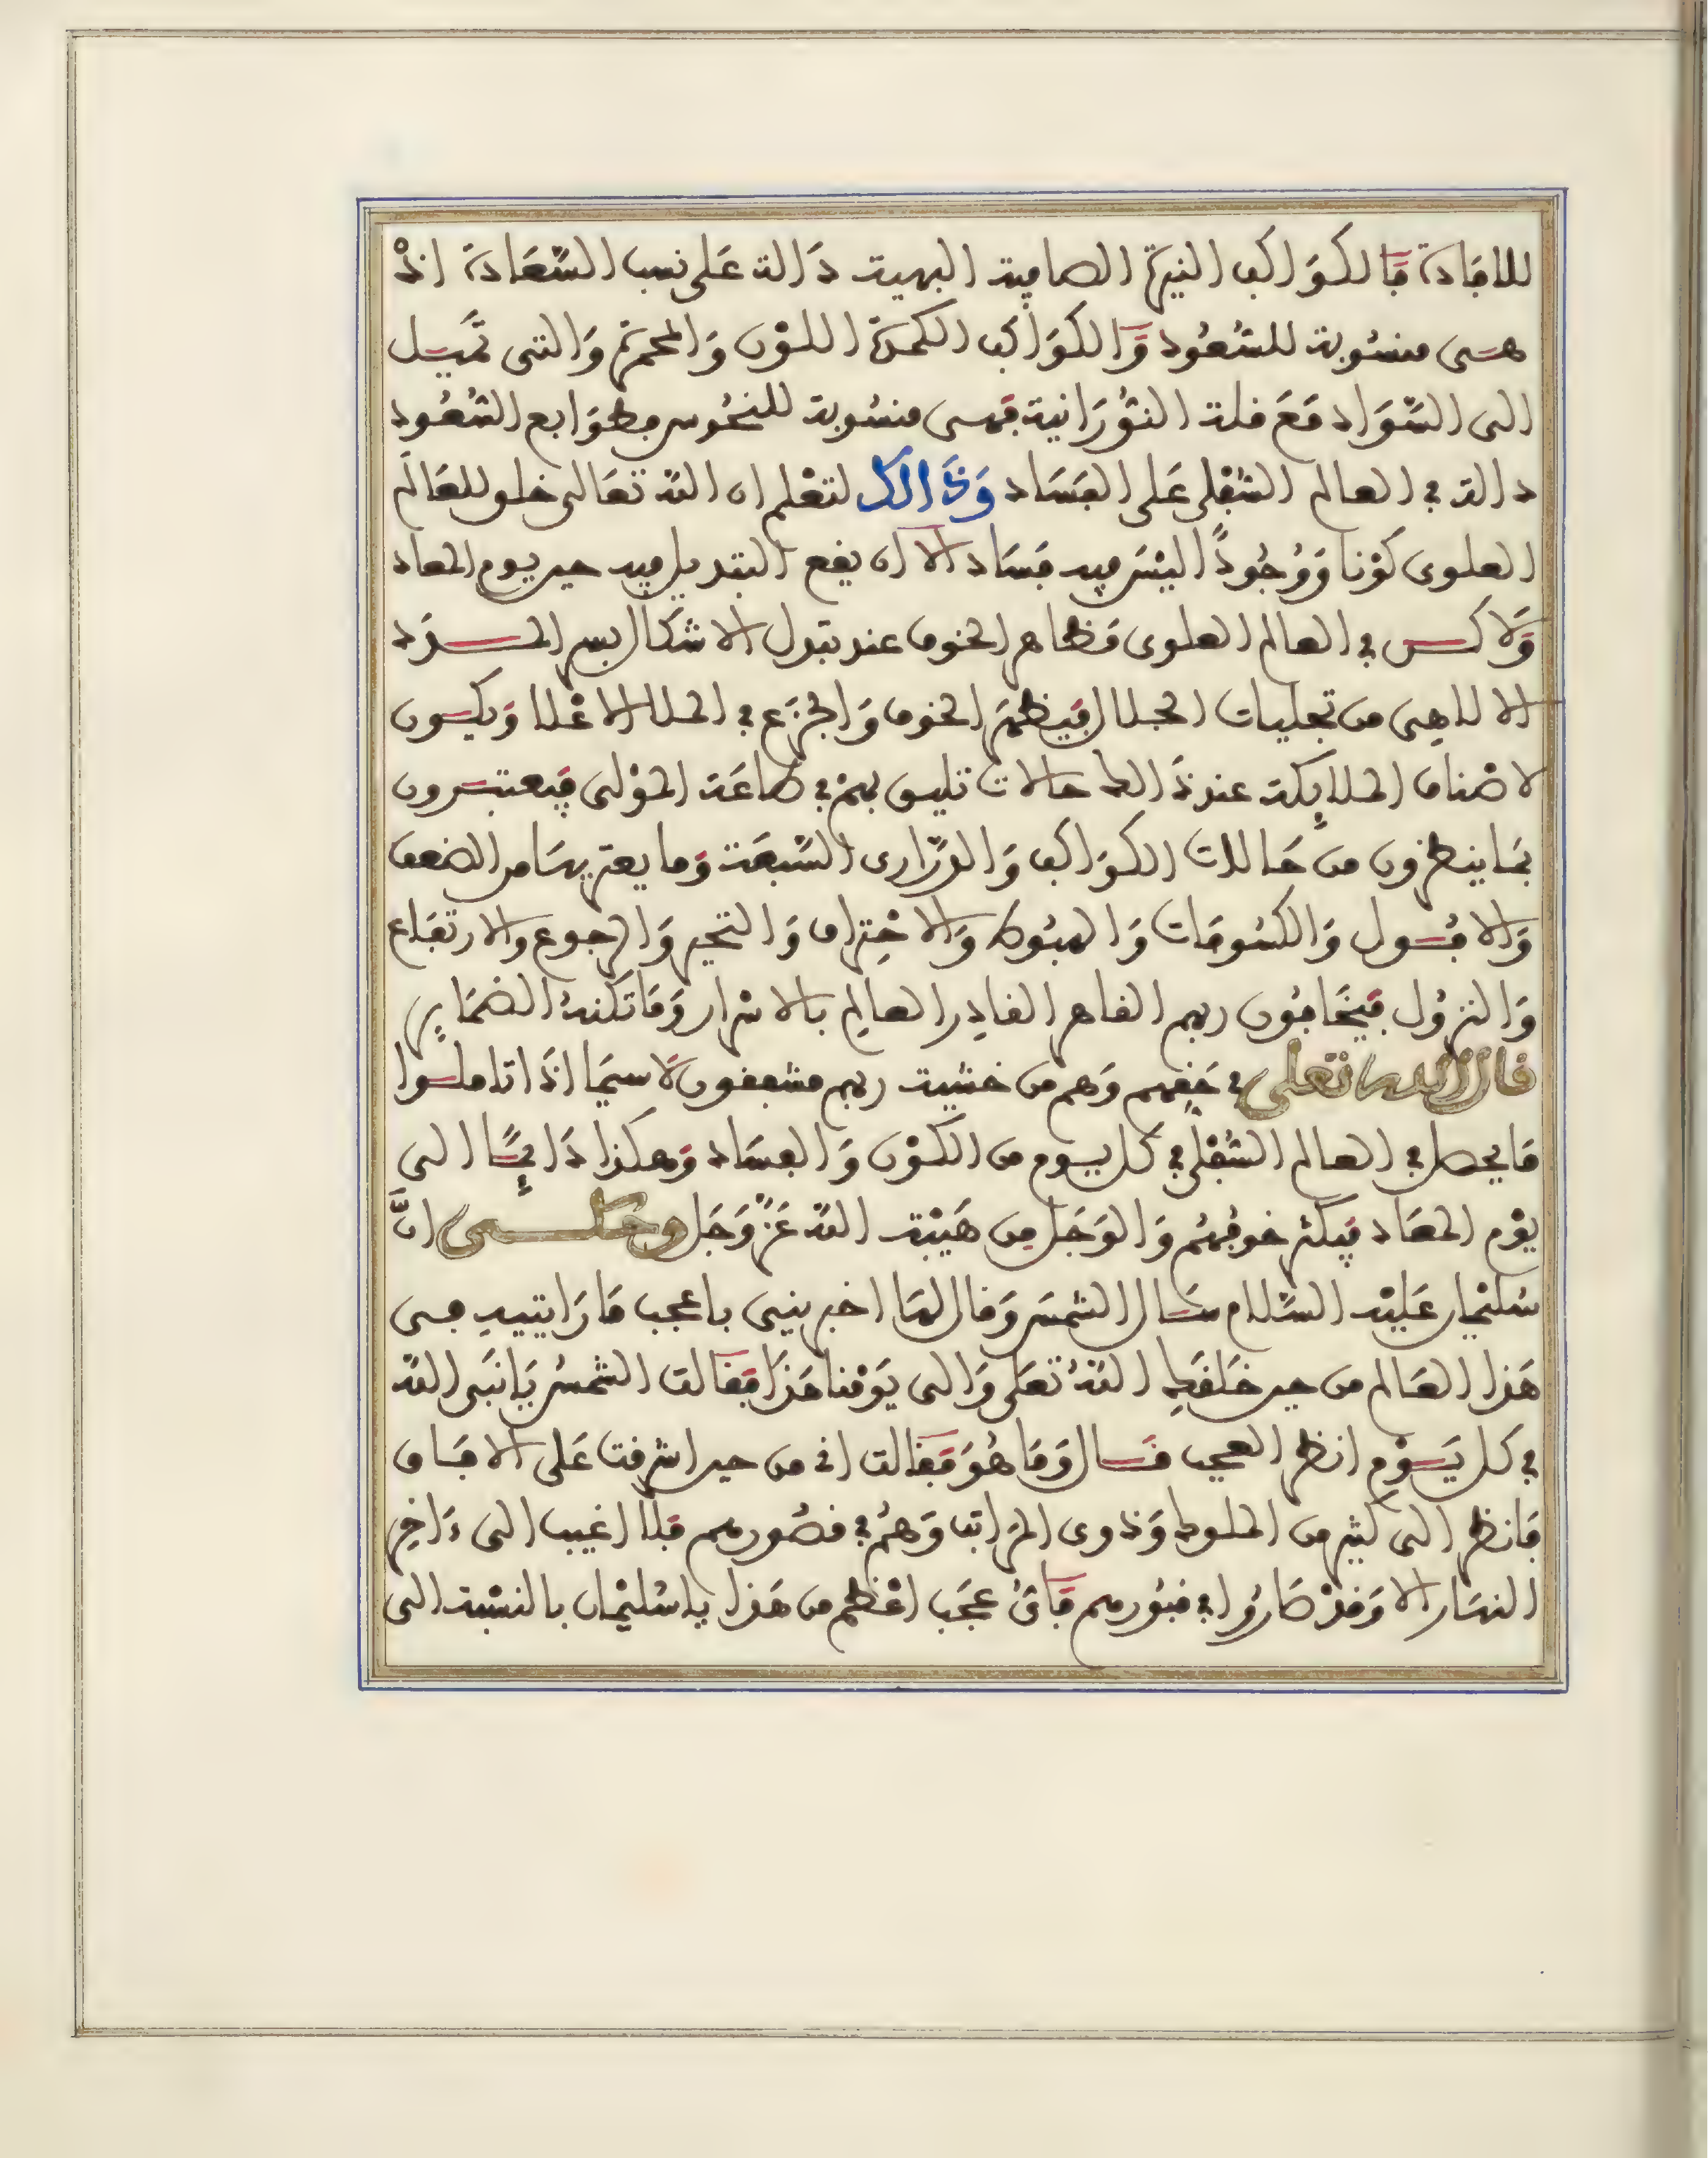 للافادة فالكواكب النيرة الصافية البهية دَالة عَلى نسب السَّعَادة اذْ
هـى منسُوبة للسُّعُود وَالكوَاكب الكمدة اللوْن وَالمحمرة وَالتى تميـل
الى السَّوَاد مَعَ قلة النُّورَانية فهـى منسُوبة للنحُوس وطوَابع السُّعُود
دالة في العالم السُّفلى عَلى الفسَاد وَذَالك لتعْلم ان اللهَ تعَالى خلق للعَالَم
العلوى كوْنا وَوُجُودًا ليْسَ فيه فسَاد الا ان يقع التبديل فيه حين يوم المعاد
وَلاكـن في العالم العلوى مَظاهر الخوف عند تبدل الاشكال بسر المـدَد
الالاهِى من تجليات الجلال فيَظهرُ الخوف وَالجزَع في الملا الاعْلا وَيكـون
لاصْناف الملايكة عند ذَالك حالات تليق بهمْ في طاعَة الموْلى فيعتبـرون
بمَا ينظرون من حَالات الكوَاكب وَالدَّرَارى السَّبعَة وَما يعتريهَا من الضعف
وَالافـول وَالكسُوفَات وَالهبُوط وَالاحْتراق وَالتحير وَالرجوع والارتفَاع
وَالنزُول فيَخَافُون ربهم القاهر القادِر العالِم بالاسْرار وَمَا تكنهُ الضمَايِر
قال الله تعلى في حَقِّهم وَهم من خشية ربهم مشفقون لَا سيمَا اذَا تاملـوا
مَا يحصل في العالم السُّفلى في كل يـوم من الكوْن وَالفسَاد وَهكذا دَائمـًا الى
يوْم المعَاد فيكثر خوفُهُم وَالوَجَل مِن هَيْبة اللهِ عَزَّ وَجَل وحكـى انَّ
سُليْمان عَليْه السَّلام سـَال الشمسَ وَقال لهَا اخبرينى باعجب مَا رَايتيهِ فـى
هَذا العَالم من حين خلقَكِ اللهُ تعَلى وَالى يَوْمنا هَذَا فقالت الشمسُ يَا نبَى الله
في كل يَـوْم انظر العجب فـَال وَمَا هُوَ فقالت انى من حين اشرقت عَلى الافـَاق
فانظر الى كثير من الملوك وَذوى المرَاتب وَهُمْ في قصُورهم فلَا اغيب الى ءَاخِر
النهَار الا وَقدْ صَارُوا في قبُورهم فَاىُّ عجَب اعْظم من هَذا يا سُليْمان بالنسْبة الى